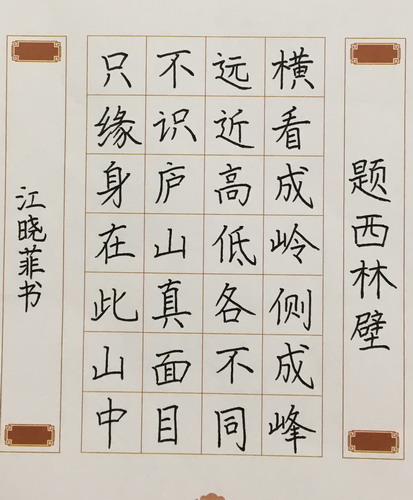 题西林壁
横看成岭侧成峰
远近高低各不同
不识庐山真面目
只缘身在此山中
江晓菲书